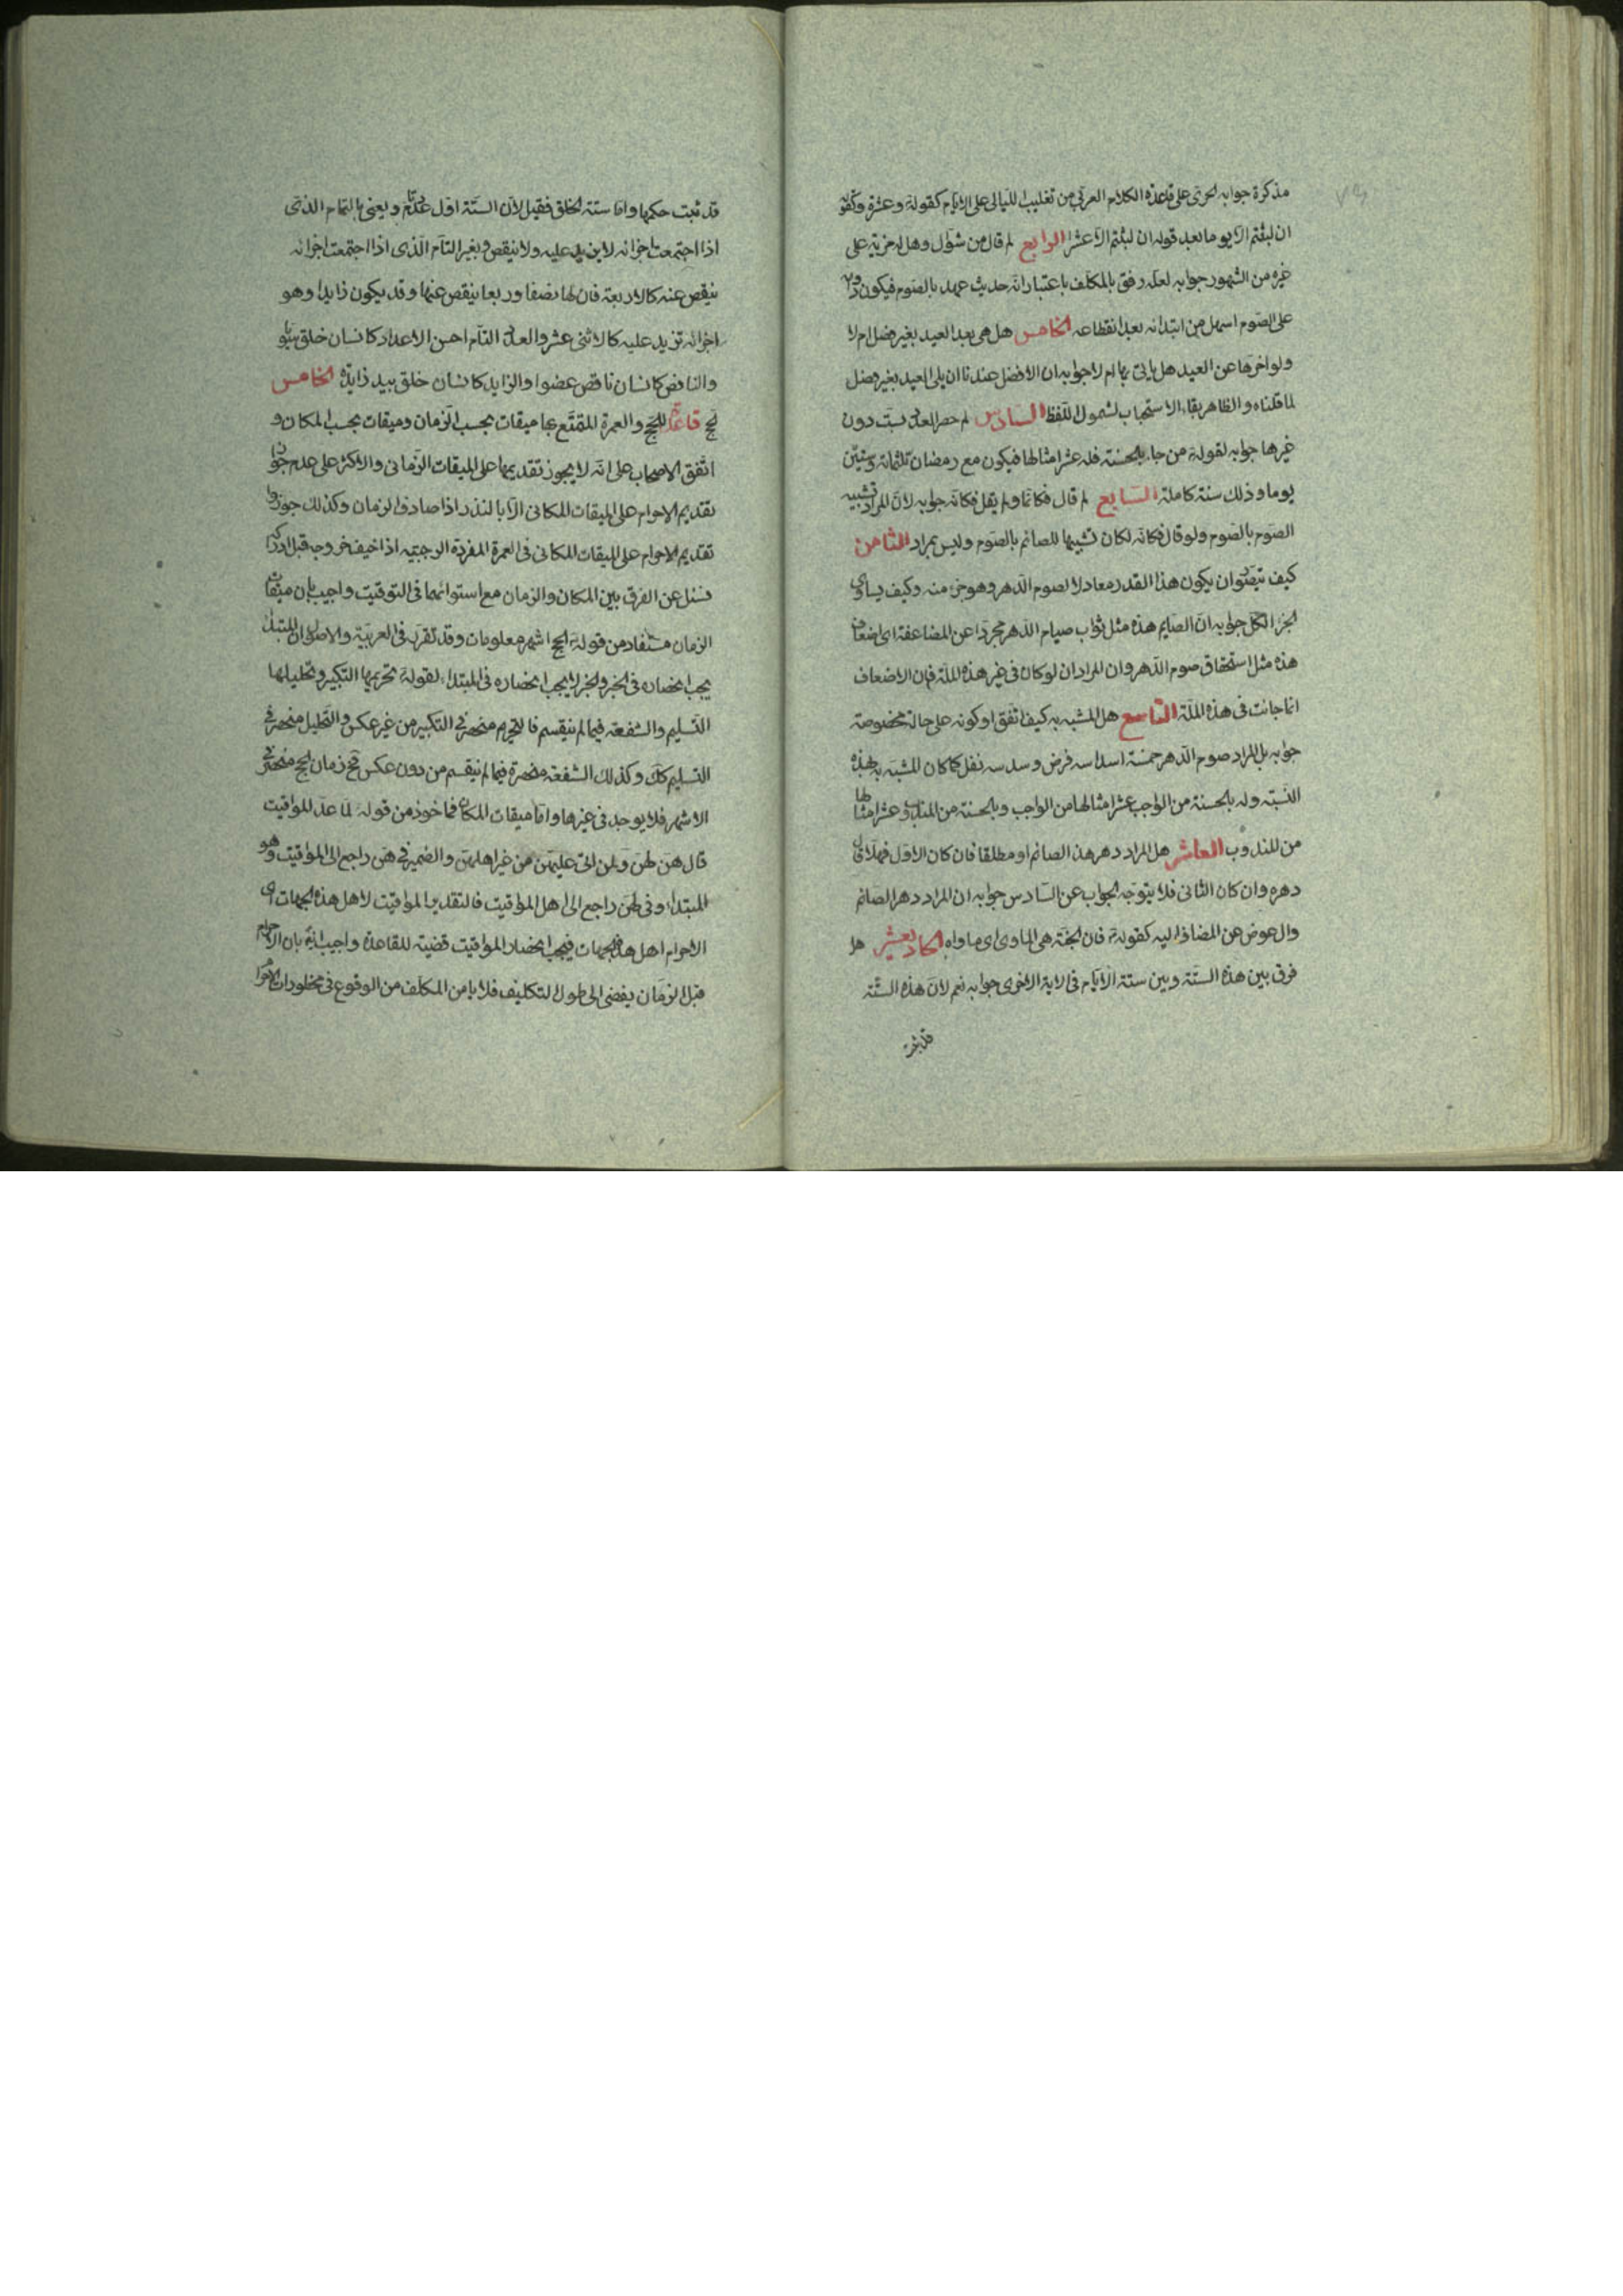 مذكرة جوابه لجرى على قاعدة الكلام العربى من تغليب الليالى على الايام كقوله وعشرا وكقو
ان لبثتم الا يوما بعد قوله ان لبثتم الا عشرا الرابع لم قال من شوال وهل له مزية على
غيره من الشهور جوابه لعله رفق بالمكلف باعتبار انه حديث عهد بالصوم فيكون
على الصوم اسهل من ابتدائه بعد انقطاعه الخامس هل هى بعد العيد بغير فصل ام لا
ولو اخرها عن العيد هل ياتى بها ام لا جوابه ان الافضل عندنا ان يلى العيد بغير فصل
لما قلناه والظاهر بقاء الاستحباب لشمول اللفظ السادس لم حصر العدد بست دون
غيرها جوابه لقوله من جاء بالحسنة فله عشر امثالها فيكون مع رمضان ثلثمائة وستين
يوما وذلك سنة كاملة السابع لم قال فكانما ولم يقل فكانه جوابه لان المراد تشبيه
الصوم بالصوم ولو قال فكانه لكان تشبيها للصائم بالصوم وليس بمراد الثامن
كيف يتصور ان يكون هذا القدر معادلا لصوم الدهر وهو جزء منه وكيف يساوى
الجزء الكل جوابه ان الصايم هذه مثل ثواب صيام الدهر مجردا عن المضاعفة اى اضعاف
هذه مثل استحقاق صوم الدهر وان المراد ان لو كان فى غير هذه الملة فان الاضعاف
انما جائت فى هذه الملة التاسع هل المشبه به كيف اتفق او كونه على حالة مخصوصة
جوابه بل المراد صوم الدهر خمسة اسداسه فرض وسدسه نفل كما كان المشبه به بهذه
النسبة وله بالحسنة من الواجب عشر امثالها من الواجب وبالحسنة من المندوب عشر امثالها
من المندوب العاشر هل المراد دهر هذا الصائم او مطلقا فان كان الاول فهلا قال
دهره وان كان الثانى فلا يتوجه الجواب عن السادس جوابه ان المراد دهر الصائم
وال عوض عن المضاف اليه كقوله فان الجنة هى الماوى اى ماواه الحاديعشر هل
فرق بين هذه الستة وبين ستة الايام فى الاية الاخرى جوابه نعم لان هذه الستة
قد ثبت
قد ثبت حكمها واما ستة الخلق فقيل لان الستة اول عدد تام ويعنى بالتمام الذى
اذا اجتمعت اجزائه لا يزيد عليه ولا ينقص وبغير التام الذى اذا اجتمعت اجزائه
ينقص عنه كالاربعة فان لها نصفا وربعا ينقص عنها وقد يكون زايدا وهو
اجزائه تزيد عليه كالاثنى عشر والعدد التام احسن الاعداد كانسان خلق سويا
والناقص كانسان ناقص عضوا والزايد كانسان خلق بيد زايدة الخامس
الحج قاعدة للحج والعمرة المتمتع بها ميقات بحسب الزمان وميقات بحسب المكان و
اتفق الاصحاب على انه لا يجوز تقديمها على الميقات الزمانى والاكثر على عدم جواز
تقديم الاحرام على الميقات المكانى الا بالنذر اذا صادف الزمان وكذلك جوزوا
تقديم الاحرام على الميقات المكانى فى العمرة المفردة الرجبية اذا خيف خروجه قبل ادراك
فسئل عن الفرق بين المكان والزمان مع استوائهما فى التوقيت واجيب بان ميقات
الزمان مستفاد من قوله الحج اشهر معلومات وقد تقرر فى العربية والاصول ان المبتدا
يجب انحصاره فى الخبر والخبر لا يجب انحصاره فى المبتدا لقوله تحريمها التكبير وتحليلها
التسليم والشفعة فيما لم يقسم فالتحريم منحصر فى التكبير من غير عكس والتحليل منحصر فى
التسليم كك وكذلك الشفعة منحصرة فيما لم ينقسم من دون عكس فح زمان الحج منحصر فى
الاشهر فلا يوجد فى غيرها واما ميقات المكان فماخوذ من قوله لما عد المواقيت
قال هن لهن ولمن اتى عليهن من غير اهلهن والضمير فى هن راجع الى المواقيت وهو
المبتدا وفى لهن راجع الى اهل المواقيت فالتقدير المواقيت لاهل هذه الجهات اى
الاحرام اهل هذه الجهات فيجب انحصار المواقيت قضية للقاعدة واجيب ايضا بان الاحرام
قبل الزمان يفضى الى طول التكليف فلا يامن المكلف من الوقوع فى محظورات الاحرام